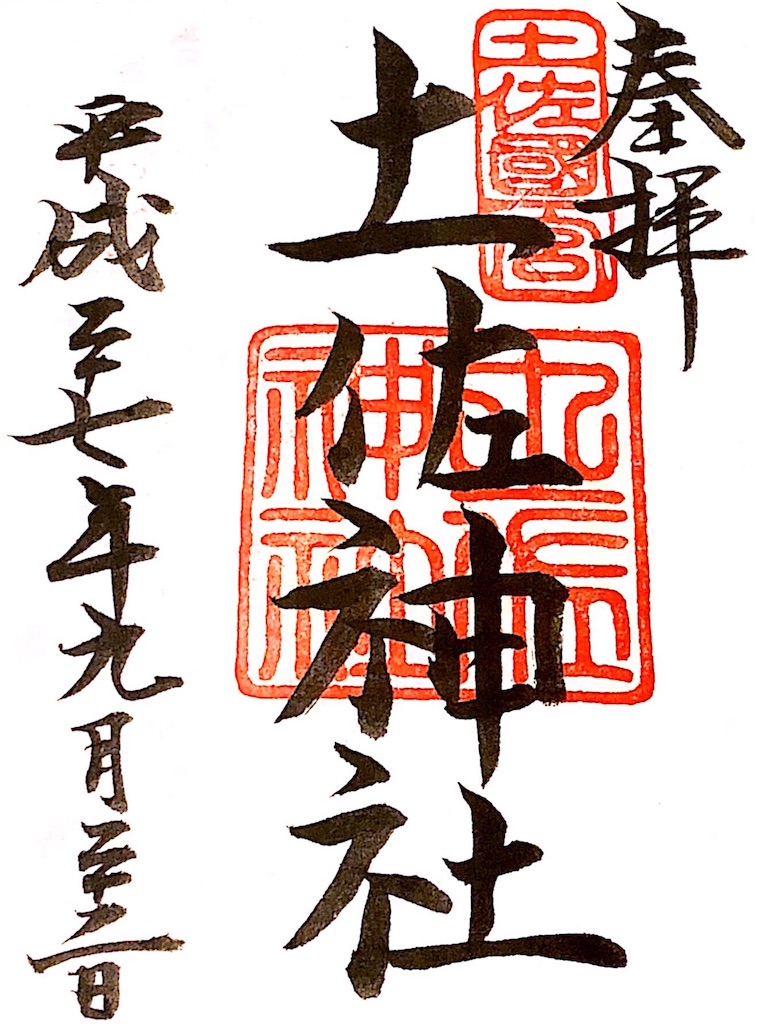 奉拝
土佐國一宮
土佐神社
土佐神社
平成二十七年九月二十二日